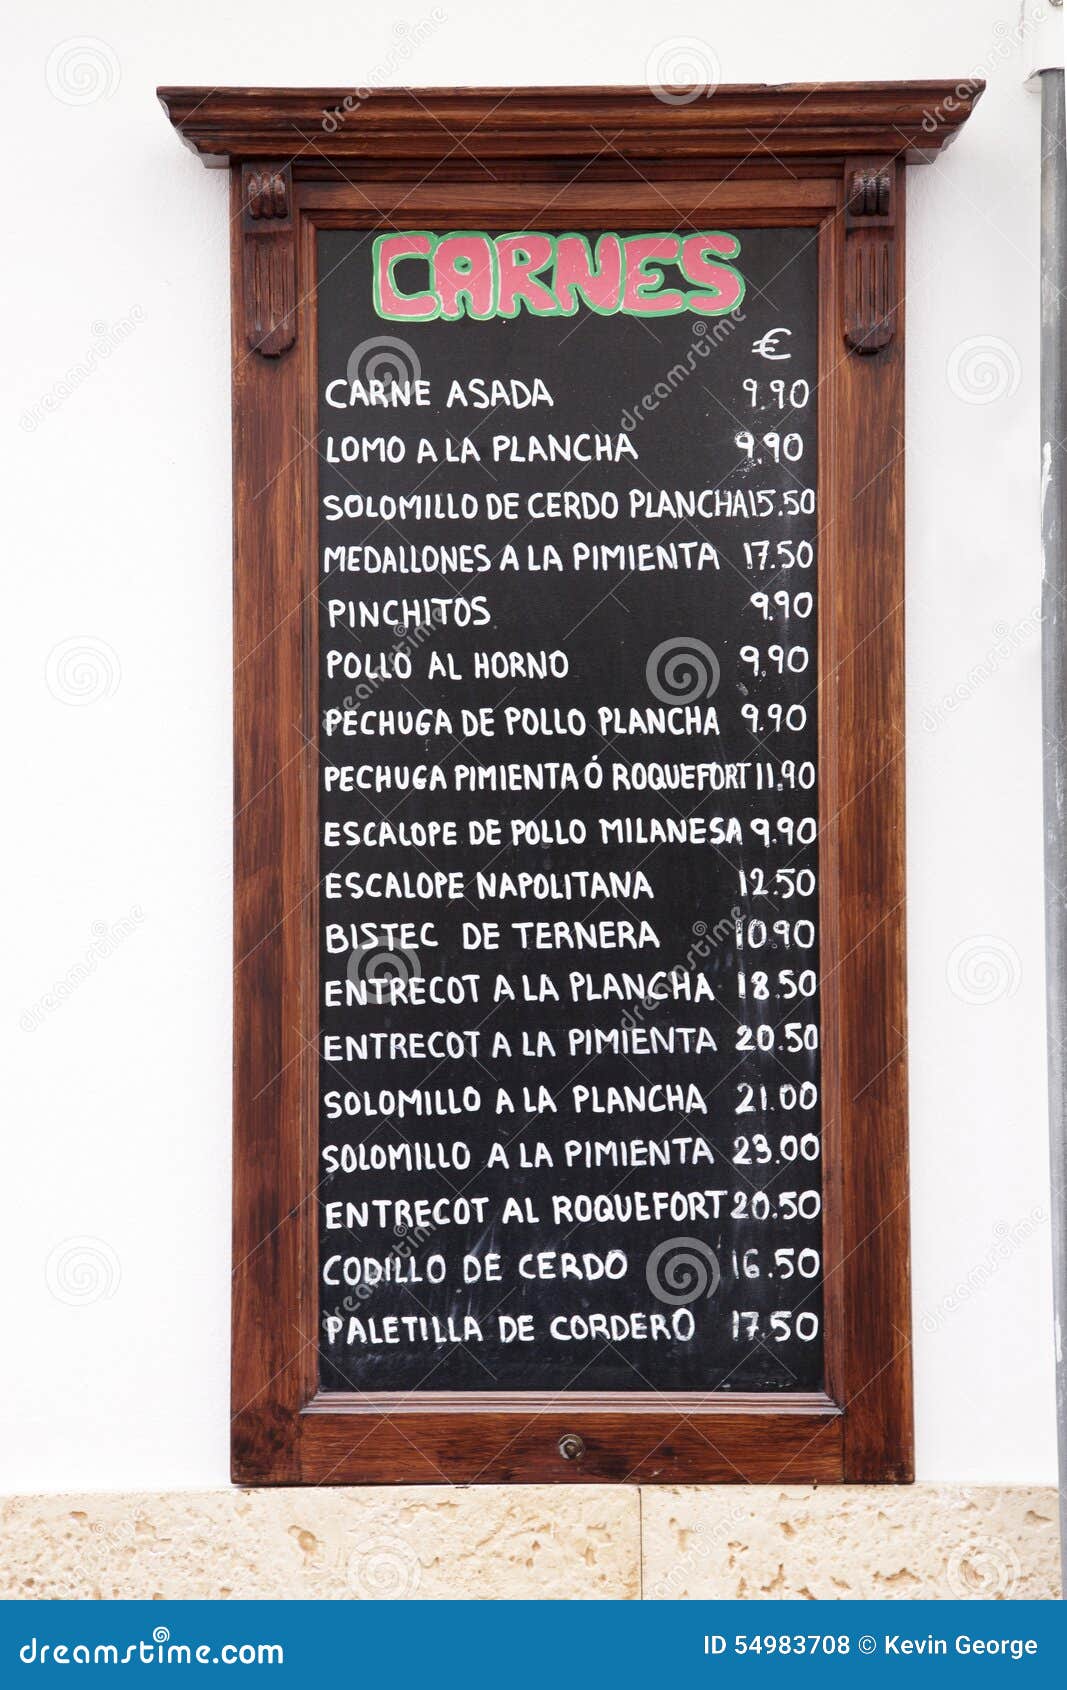 CARNES
€
CARNE ASADA 9.90
LOMO A LA PLANCHA 9.90
SOLOMILLO DE CERDO PLANCHA 15.50
MEDALLONES A LA PIMIENTA 17.50
PINCHITOS 9.90
POLLO AL HORNO 9.90
PECHUGA DE POLLO PLANCHA 9.90
PECHUGA PIMIENTA Ó ROQUEFORT 11.90
ESCALOPE DE POLLO MILANESA 9.90
ESCALOPE NAPOLITANA 12.50
BISTEC DE TERNERA 10.90
ENTRECOT A LA PLANCHA 18.50
ENTRECOT A LA PIMIENTA 20.50
SOLOMILLO A LA PLANCHA 21.00
SOLOMILLO A LA PIMIENTA 23.00
ENTRECOT AL ROQUEFORT 20.50
CODILLO DE CERDO 16.50
PALETILLA DE CORDERO 17.50
dreamstime.com ID 54983708 © Kevin George